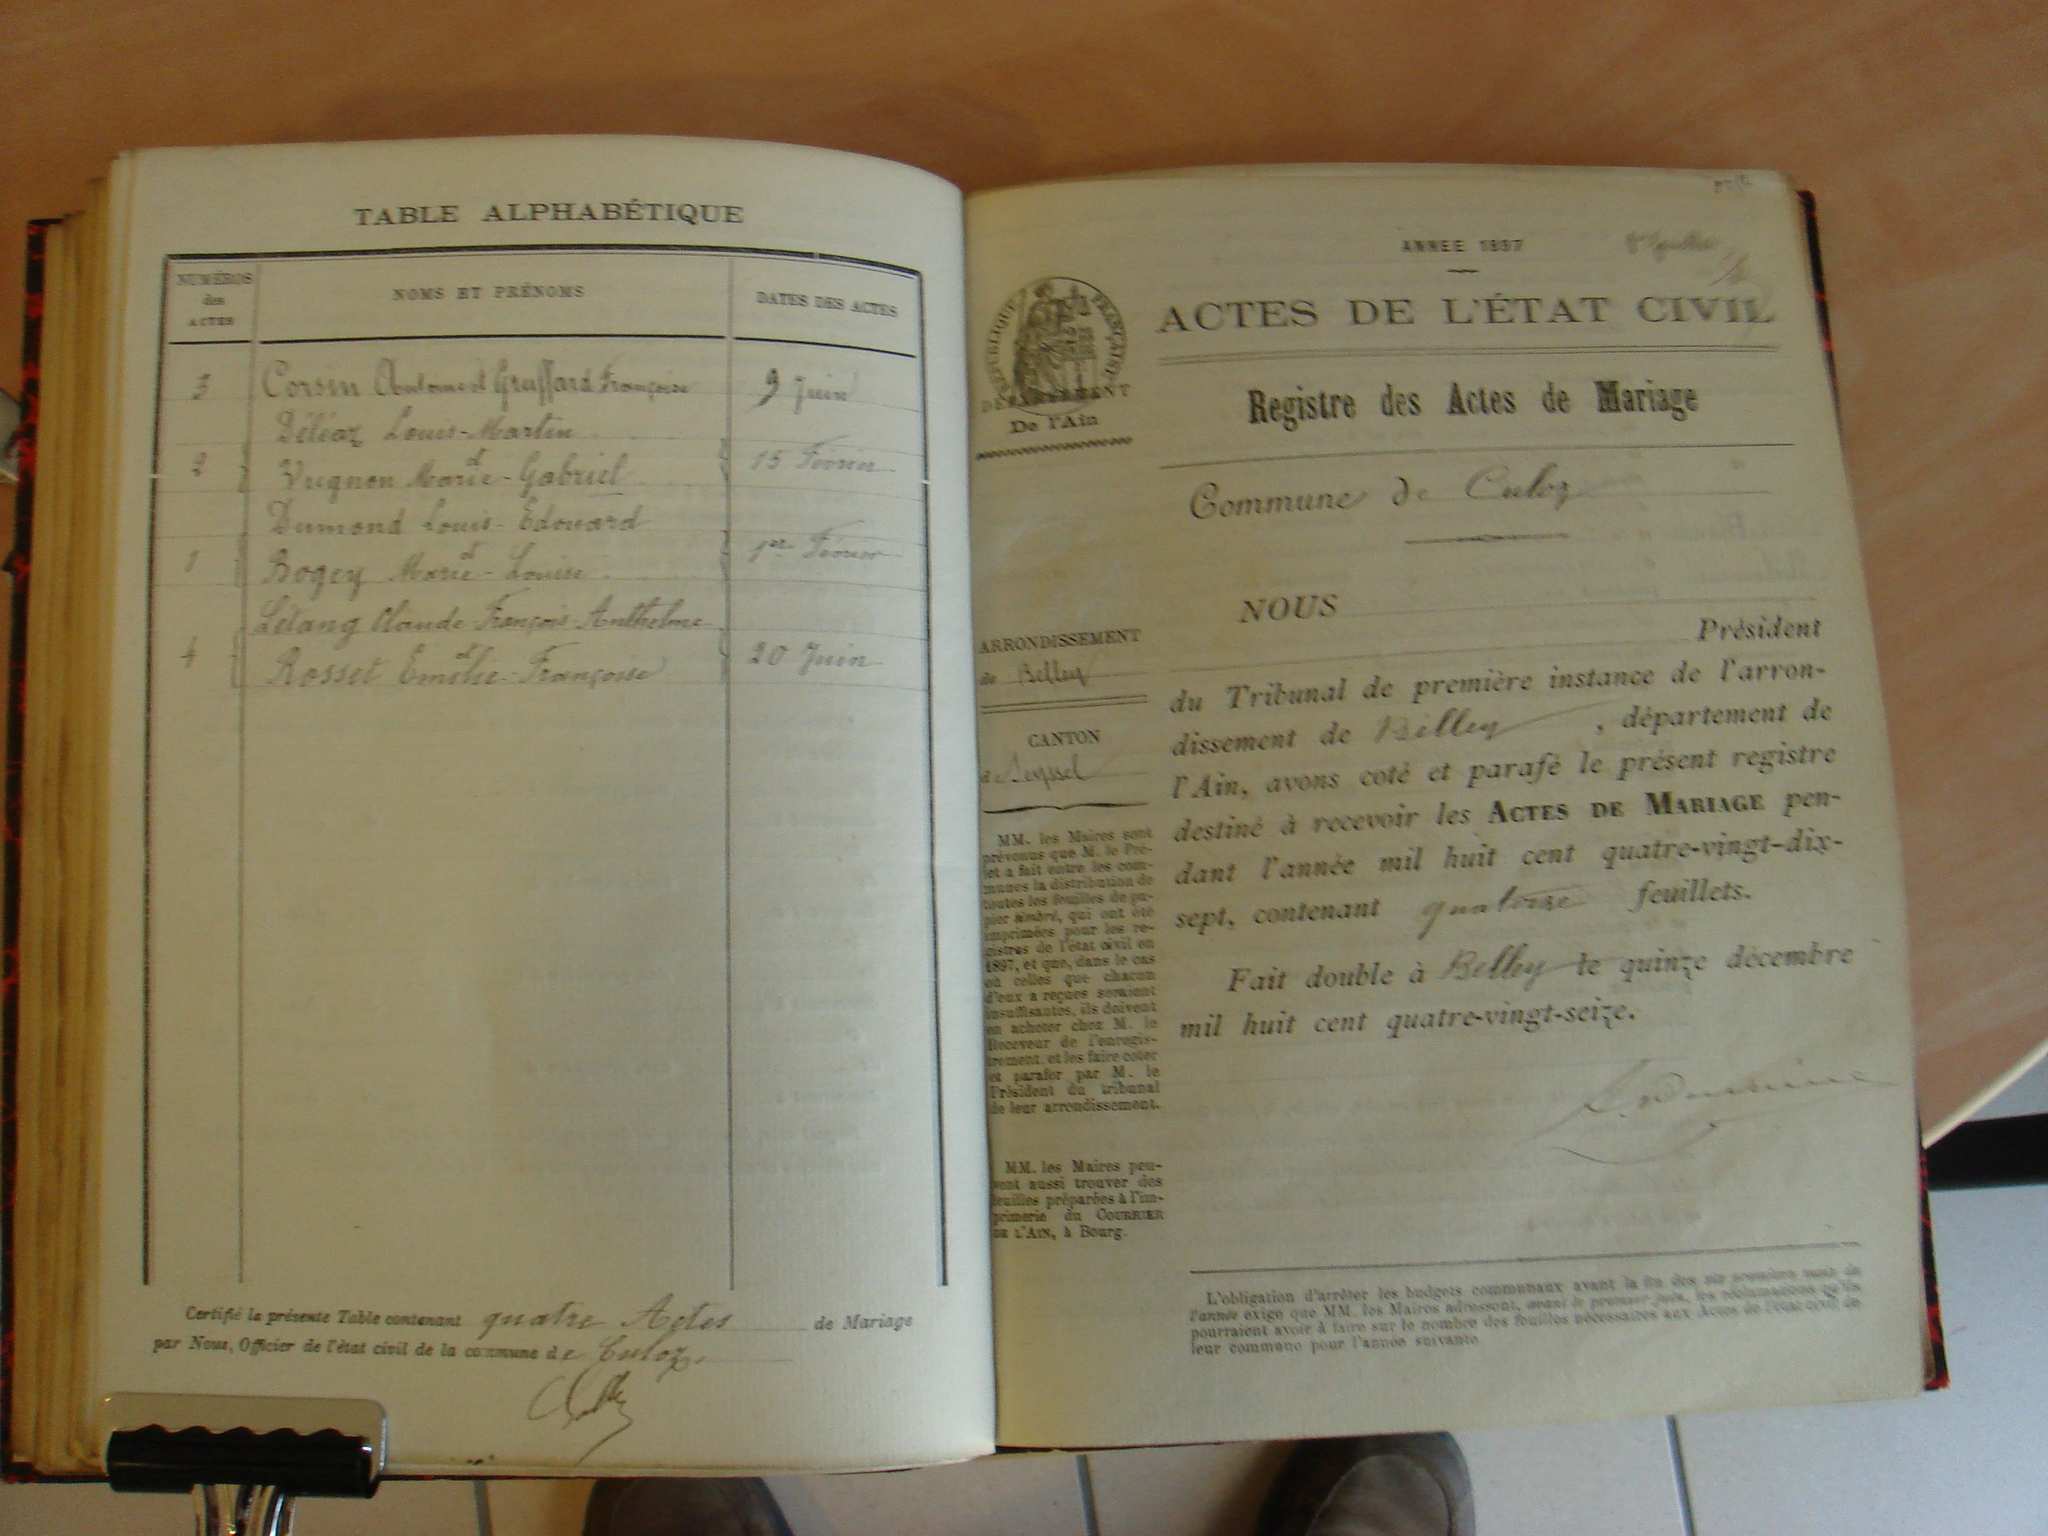 TABLE ALPHABÉTIQUE
NUMÉROS des ACTES
NOMS ET PRÉNOMS
DATES DES ACTES
3 Corsin Antoine et Gruffard Françoise 9 Juin
Déléaz Louis-Martin
et
2 Vugnon Marie-Gabriel 15 Février
Dumond Louis-Edouard
et
1 Bogey Marie-Louise 1er Février
Létang Claude-François-Anthelme
et
4 Rosset Emélie-Françoise 20 Juin
Certifié la présente Table contenant quatre Actes de Mariage
par Nous, Officier de l'état civil de la commune de Culoz.
ANNEE 1897
ACTES DE L'ÉTAT CIVIL
RÉPUBLIQUE FRANÇAISE
DÉPARTEMENT
De l'Ain
Registre des Actes de Mariage
Commune de Culoz
ARRONDISSEMENT
de Belley
CANTON
d Seyssel
MM. les Maires sont
prévenus que M. le Pré-
fet a fait entre les com-
munes la distribution de
toutes les feuilles de pa-
pier timbré, qui ont été
imprimées pour les re-
gistres de l'état civil en
1897, et que, dans le cas
où celles que chacun
d'eux a reçues seraient
insuffisantes, ils doivent
en acheter chez M. le
Receveur de l'enregis-
trement, et les faire coter
et parafer par M. le
Président du tribunal
de leur arrondissement.
MM. les Maires peu-
vent aussi trouver des
feuilles préparées à l'im-
primerie du COURRIER
DE L'AIN, à Bourg.
NOUS
Président
du Tribunal de première instance de l'arron-
dissement de Belley, département de
l'Ain, avons coté et parafé le présent registre
destiné à recevoir les ACTES DE MARIAGE pen-
dant l'année mil huit cent quatre-vingt-dix-
sept, contenant quatorze feuillets.
Fait double à Belley le quinze décembre
mil huit cent quatre-vingt-seize.
L'obligation d'arrêter les budgets communaux avant la fin des six premiers mois de
l'année exige que MM. les Maires adressent, avant le premier juin, les réclamations qu'ils
pourraient avoir à faire sur le nombre des feuilles nécessaires aux Actes de l'état civil de
leur commune pour l'année suivante